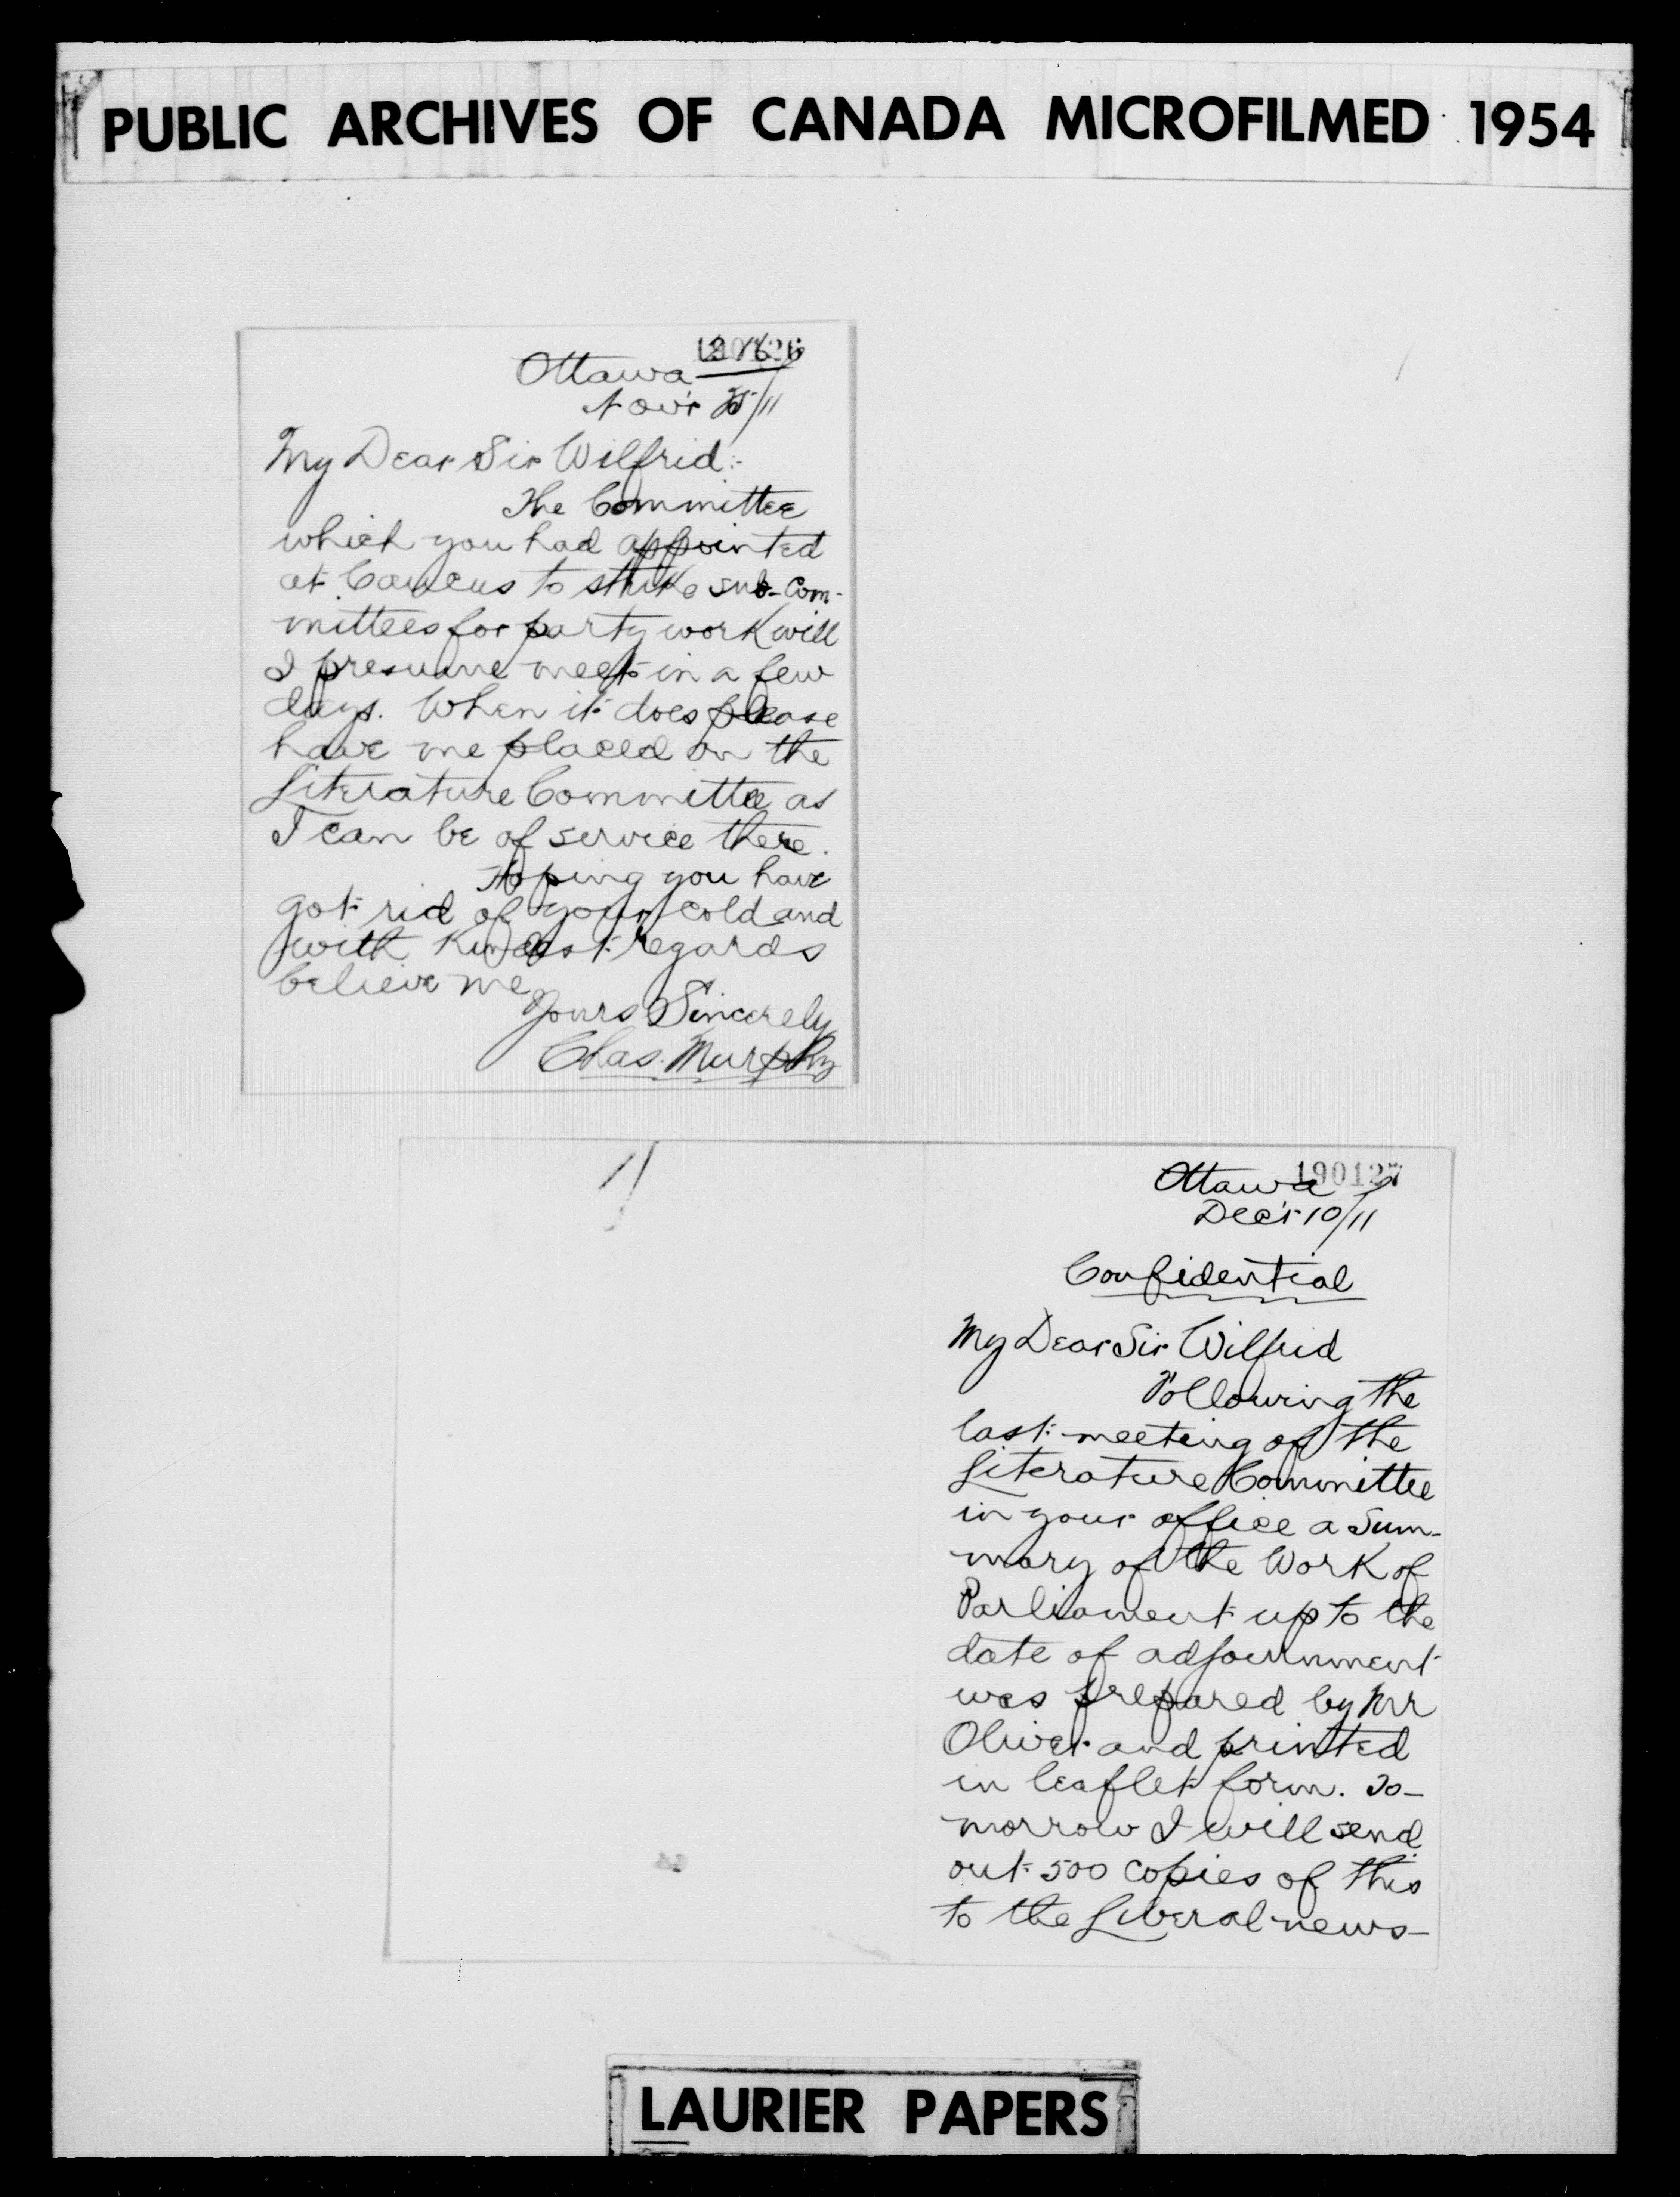 PUBLIC ARCHIVES OF CANADA MICROFILMED 1954
Ottawa
Nov'r 25/11
My Dear Sir Wilfrid:-
The Committee
which you had appointed
at Caucus to strike sub-com-
mittees for party work will
I presume meet in a few
days. When it does please
have me placed on the
Literature Committee as
I can be of service there.
Hoping you have
got rid of your cold and
with kindest regards
believe me
Yours Sincerely
Chas. Murphy
190127
Ottawa
Dec'r 10/11
Confidential
My Dear Sir Wilfrid
Following the
last meeting of the
Literature Committee
in your office a Sum-
mary of the Work of
Parliament up to the
date of adjournment
was prepared by Mr
Oliver and printed
in leaflet form. To-
morrow I will send
out 500 copies of this
to the Liberal news-
LAURIER PAPERS